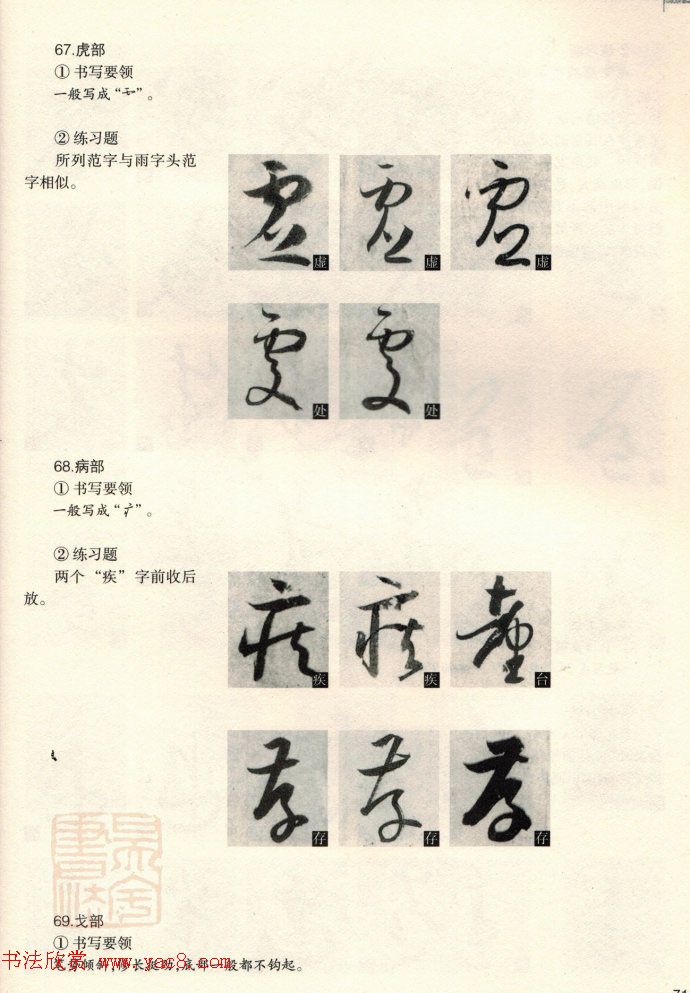 67.虎部
① 书写要领
一般写成“”。
② 练习题
所列范字与雨字头范
字相似。
虚 虚 虚
处 处
68.病部
① 书写要领
一般写成“疒”。
② 练习题
两个“疾”字前收后
放。
疾 疾 台
存 存 存
69.戈部
① 书写要领
笔势倾斜,修长挺劲,底部一般都不钩起。
书法欣赏 www.yac8.com
71